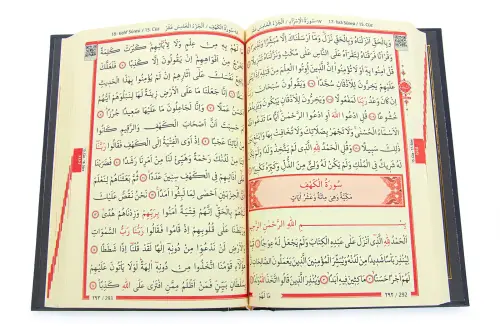 ١٧-سُورَةُ الْاِسْرَاءِ / اَلْجُزْءُ الْخَامِسُ عَشَرَ
17- İsrâ Sûresi / 15. Cüz
وَبِالْحَقِّ اَنْزَلْنَاهُ وَبِالْحَقِّ نَزَلَ وَمَا اَرْسَلْنَاكَ اِلَّا مُبَشِّرًا وَنَذِيرًا
وَقُرْاٰنًا فَرَقْنَاهُ لِتَقْرَاَهُ عَلَى النَّاسِ عَلٰى مُكْثٍ وَنَزَّلْنَاهُ تَنْزِيلًا
قُلْ اٰمِنُوا بِهِ اَوْ لَا تُؤْمِنُوا اِنَّ الَّذِينَ اُوتُوا الْعِلْمَ مِنْ قَبْلِهِ
اِذَا يُتْلٰى عَلَيْهِمْ يَخِرُّونَ لِلْاَذْقَانِ سُجَّدًا وَيَقُولُونَ سُبْحَانَ رَبِّنَا
اِنْ كَانَ وَعْدُ رَبِّنَا لَمَفْعُولًا وَيَخِرُّونَ لِلْاَذْقَانِ يَبْكُونَ وَيَزِيدُهُمْ
خُشُوعًا قُلِ ادْعُوا اللّٰهَ اَوِ ادْعُوا الرَّحْمٰنَ اَيًّا مَا تَدْعُوا فَلَهُ
الْاَسْمَاءُ الْحُسْنٰى وَلَا تَجْهَرْ بِصَلَاتِكَ وَلَا تُخَافِتْ بِهَا وَابْتَغِ بَيْنَ
ذٰلِكَ سَبِيلًا وَقُلِ الْحَمْدُ لِلّٰهِ الَّذِي لَمْ يَتَّخِذْ وَلَدًا وَلَمْ يَكُنْ لَهُ
شَرِيكٌ فِي الْمُلْكِ وَلَمْ يَكُنْ لَهُ وَلِيٌّ مِنَ الذُّلِّ وَكَبِّرْهُ تَكْبِيرًا
سُورَةُ الْكَهْفِ
مَكِّيَّةٌ وَهِيَ مِائَةٌ وَعَشْرُ اٰيَاتٍ
بِسْمِ اللّٰهِ الرَّحْمٰنِ الرَّحِيمِ
اَلْحَمْدُ لِلّٰهِ الَّذِي اَنْزَلَ عَلٰى عَبْدِهِ الْكِتَابَ وَلَمْ يَجْعَلْ لَهُ عِوَجًا
قَيِّمًا لِيُنْذِرَ بَأْسًا شَدِيدًا مِنْ لَدُنْهُ وَيُبَشِّرَ الْمُؤْمِنِينَ الَّذِينَ يَعْمَلُونَ الصَّالِحَاتِ اَنَّ
لَهُمْ اَجْرًا حَسَنًا مَاكِثِينَ فِيهِ اَبَدًا وَيُنْذِرَ الَّذِينَ قَالُوا اتَّخَذَ اللّٰهُ وَلَدًا
مَا لَهُمْ
٢٩٢ / 292
١٨-سُورَةُ الْكَهْفِ / اَلْجُزْءُ الْخَامِسُ عَشَرَ
18- Kehf Sûresi / 15. Cüz
مَا لَهُمْ بِهِ مِنْ عِلْمٍ وَلَا لِاٰبَائِهِمْ كَبُرَتْ كَلِمَةً
تَخْرُجُ مِنْ اَفْوَاهِهِمْ اِنْ يَقُولُونَ اِلَّا كَذِبًا فَلَعَلَّكَ
بَاخِعٌ نَفْسَكَ عَلٰى اٰثَارِهِمْ اِنْ لَمْ يُؤْمِنُوا بِهٰذَا الْحَدِيثِ
اَسَفًا اِنَّا جَعَلْنَا مَا عَلَى الْاَرْضِ زِينَةً لَهَا لِنَبْلُوَهُمْ اَيُّهُمْ
اَحْسَنُ عَمَلًا وَاِنَّا لَجَاعِلُونَ مَا عَلَيْهَا صَعِيدًا جُرُزًا
اَمْ حَسِبْتَ اَنَّ اَصْحَابَ الْكَهْفِ وَالرَّقِيمِ كَانُوا
مِنْ اٰيَاتِنَا عَجَبًا اِذْ اَوَى الْفِتْيَةُ اِلَى الْكَهْفِ فَقَالُوا
رَبَّنَا اٰتِنَا مِنْ لَدُنْكَ رَحْمَةً وَهَيِّئْ لَنَا مِنْ اَمْرِنَا رَشَدًا
فَضَرَبْنَا عَلٰى اٰذَانِهِمْ فِي الْكَهْفِ سِنِينَ عَدَدًا ثُمَّ بَعَثْنَاهُمْ لِنَعْلَمَ
اَيُّ الْحِزْبَيْنِ اَحْصٰى لِمَا لَبِثُوا اَمَدًا نَحْنُ نَقُصُّ عَلَيْكَ
نَبَاَهُمْ بِالْحَقِّ اِنَّهُمْ فِتْيَةٌ اٰمَنُوا بِرَبِّهِمْ وَزِدْنَاهُمْ هُدًى
وَرَبَطْنَا عَلٰى قُلُوبِهِمْ اِذْ قَامُوا فَقَالُوا رَبُّنَا رَبُّ السَّمٰوَاتِ
وَالْاَرْضِ لَنْ نَدْعُوَا مِنْ دُونِهِ اِلٰهًا لَقَدْ قُلْنَا اِذًا شَطَطًا
هٰؤُلَاءِ قَوْمُنَا اتَّخَذُوا مِنْ دُونِهِ اٰلِهَةً لَوْلَا يَأْتُونَ عَلَيْهِمْ
بِسُلْطَانٍ بَيِّنٍ فَمَنْ اَظْلَمُ مِمَّنِ افْتَرٰى عَلَى اللّٰهِ كَذِبًا
٢٩٣ / 293